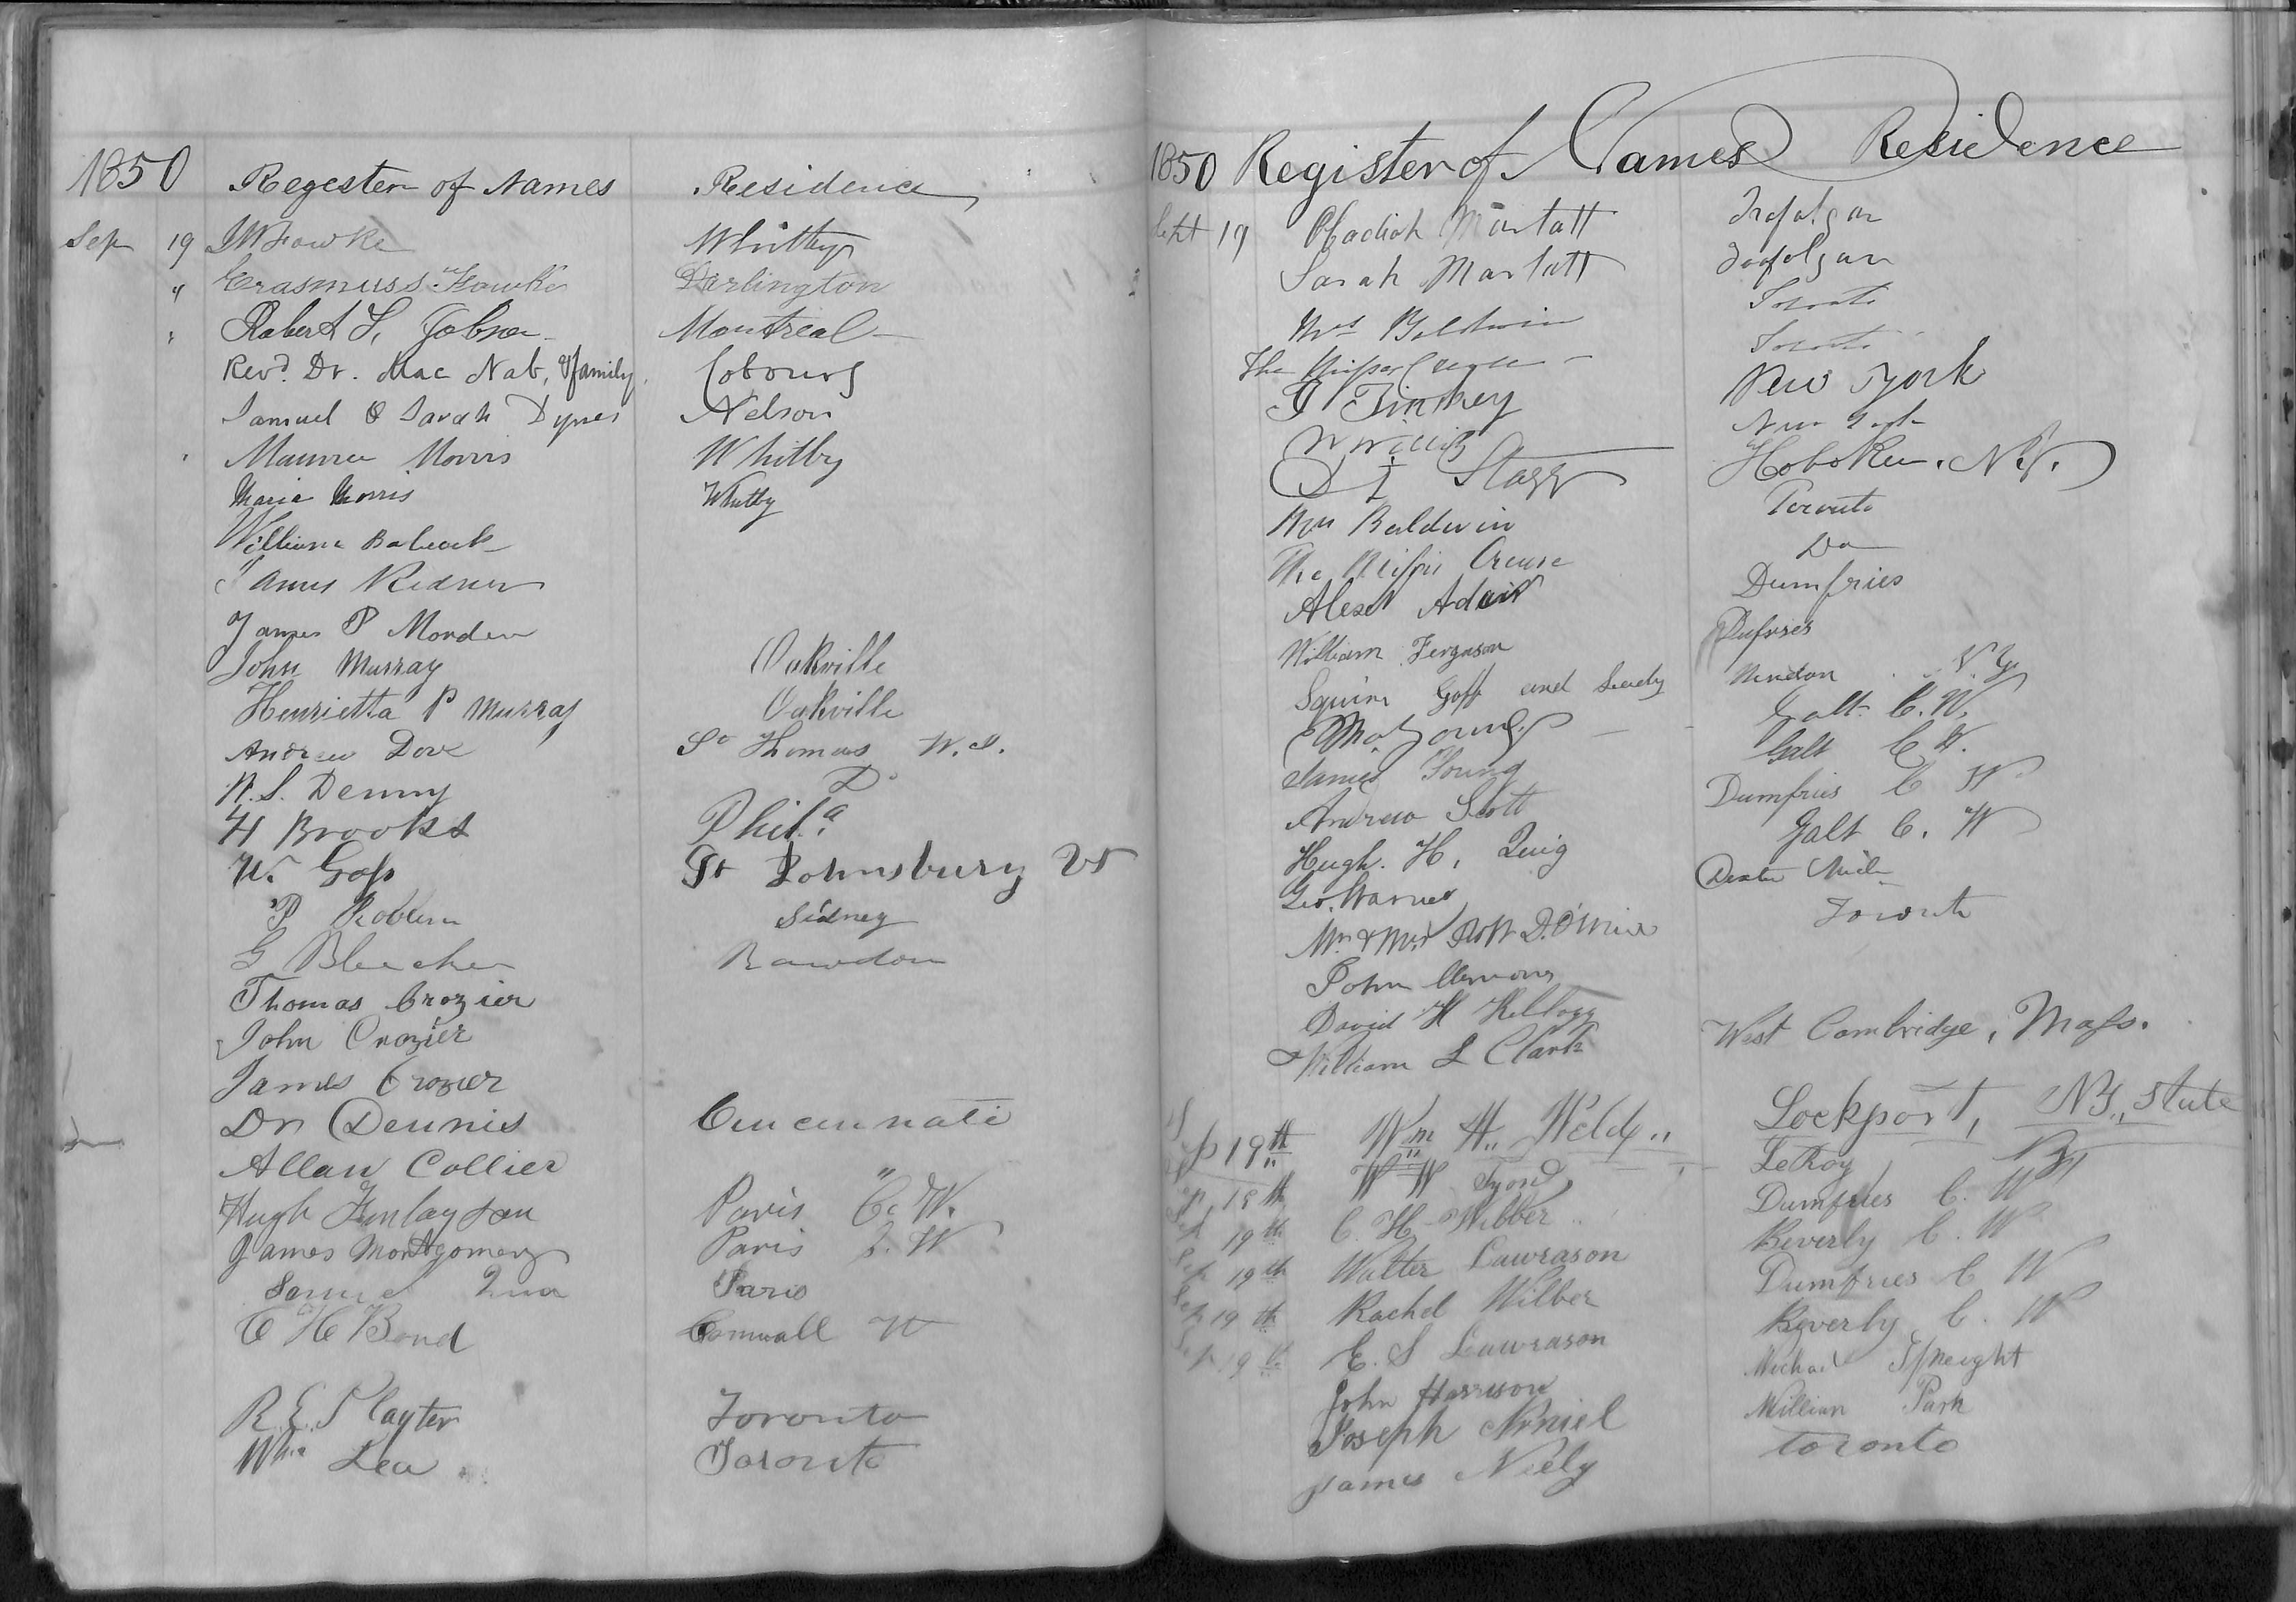 1850 Regester of Names Residence
Sep 19 J W Fowke Whitby
" Erasmuss Fowke Darlington
" Robert S. Montreal
Revd. Dr. Mac Nab, & family Cobourg
Samuel & Sarah Dynes Nelson
Maurice Morris Whitby
Maria Morris Whitby
William Babcock
James Redner
James P Morden
John Murray Oakville
Henrietta P Murray Oakville
Andrew Dove St Thomas W.I.
N. S. Denny Do
H Brooks Phila.
W. Goss St Johnsbury Vt
P Sidney
G Bleecker Rawdon
Thomas Crozier
John Crozier
James Crozier
Dr Dennis Cincinnati
Allan Collier "
Hugh Finlayson Paris C. W.
James Montgomery Paris C. W
Paris
C H Bond Cornwall W
R. E. Playter Toronto
Wm Lea Toronto
1850 Register of Names Residence
Sept 19 Obadiah Marlatt Trafalgar
Sarah Marlatt Trafalgar
Mrs Baldwin Toronto
The Misses Crease Toronto
G Tinkey New York
W Willis New York
D T Stagg Hoboken. N.J.
Mrs Baldwin Toronto
The Misses Crease Do
Alexr Adair Dumfries
William Ferguson Dufries
Squire Goff and Leady Mendon N.Y.
M. Young Galt C. W.
James Young Galt C W.
Andrew Scott Dumfries C W
Hugh. H. Quig Galt C. W
Geo. Warner Dexter Mich
Mr & Mrs Robt D. Toronto
John Clemons
David H Kellogg
William L Clark West Cambridge, Mass.
Sep 19th Wm H. Weld Lockport, N.Y., State
Sep 19th W W LeRoy NY
Sep 19th C. H Wilber Dumfries C. W
Sep 19th Walter Lawrason Beverly C. W
Sep 19th Rachel Wilber Dumfries C W
Sep 19th E. S Lawrason Beverly C. W
John Harrison Michael Spreight
Joseph William Park
James Neely toronto